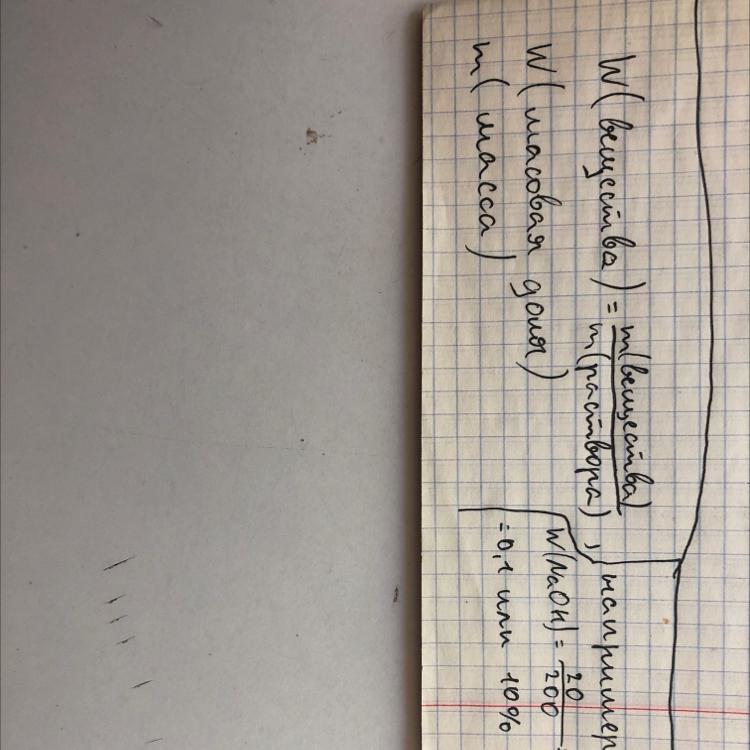 W(вещества) = m(вещества) / m(раствора), например
W(масовая доля)
m(масса)
W(NaOH) = 20 / 200
= 0,1 или 10%